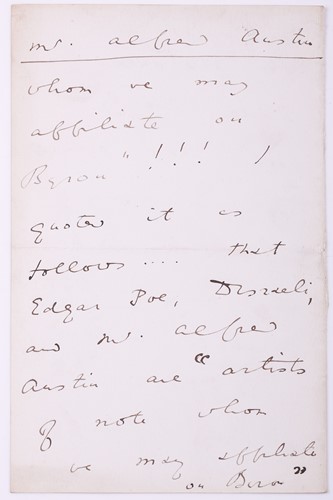 Mr. Alfred Austin
whom we may
affiliate on
Byron " !!! )
quotes it as
follows.... that
Edgar Poe, Disraeli,
and Mr. Alfred
Austin are "artists
of note whom
we may affiliate
on Byron"